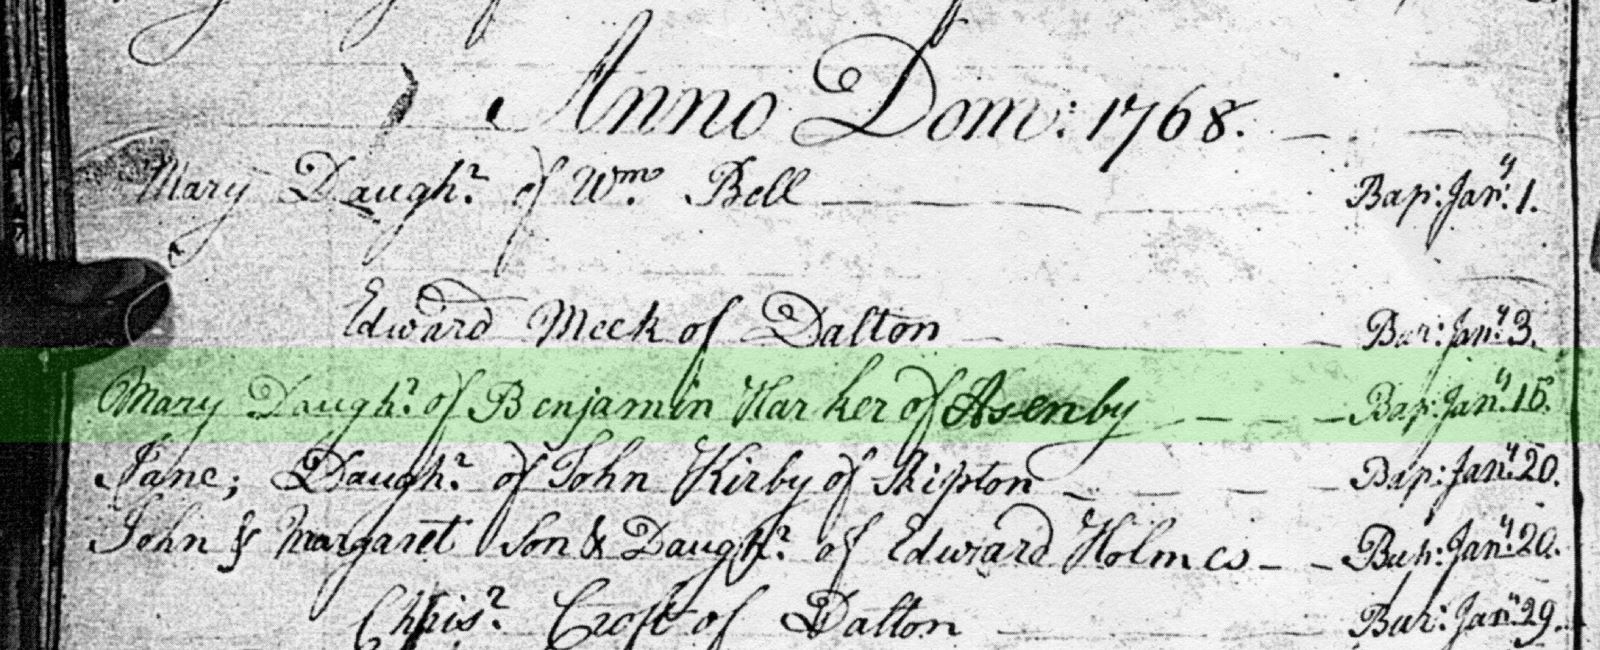 Anno Dom: 1768.
Mary Daugh.r of Wm. Bell Bap: Jan.y 1.
Edward Meek of Dalton Bur: Jan.y 3.
Mary Daugh.r of Benjamin Harker of Asenby Bap: Jan.y 15.
Jane; Daugh.r of John Kirby of Skipton Bap: Jan.y 20.
John & Margaret Son & Daugh.r of Edward Holmes Jan.y 20.
Chris.r Croft of Dalton Bur: Jan.y 29.